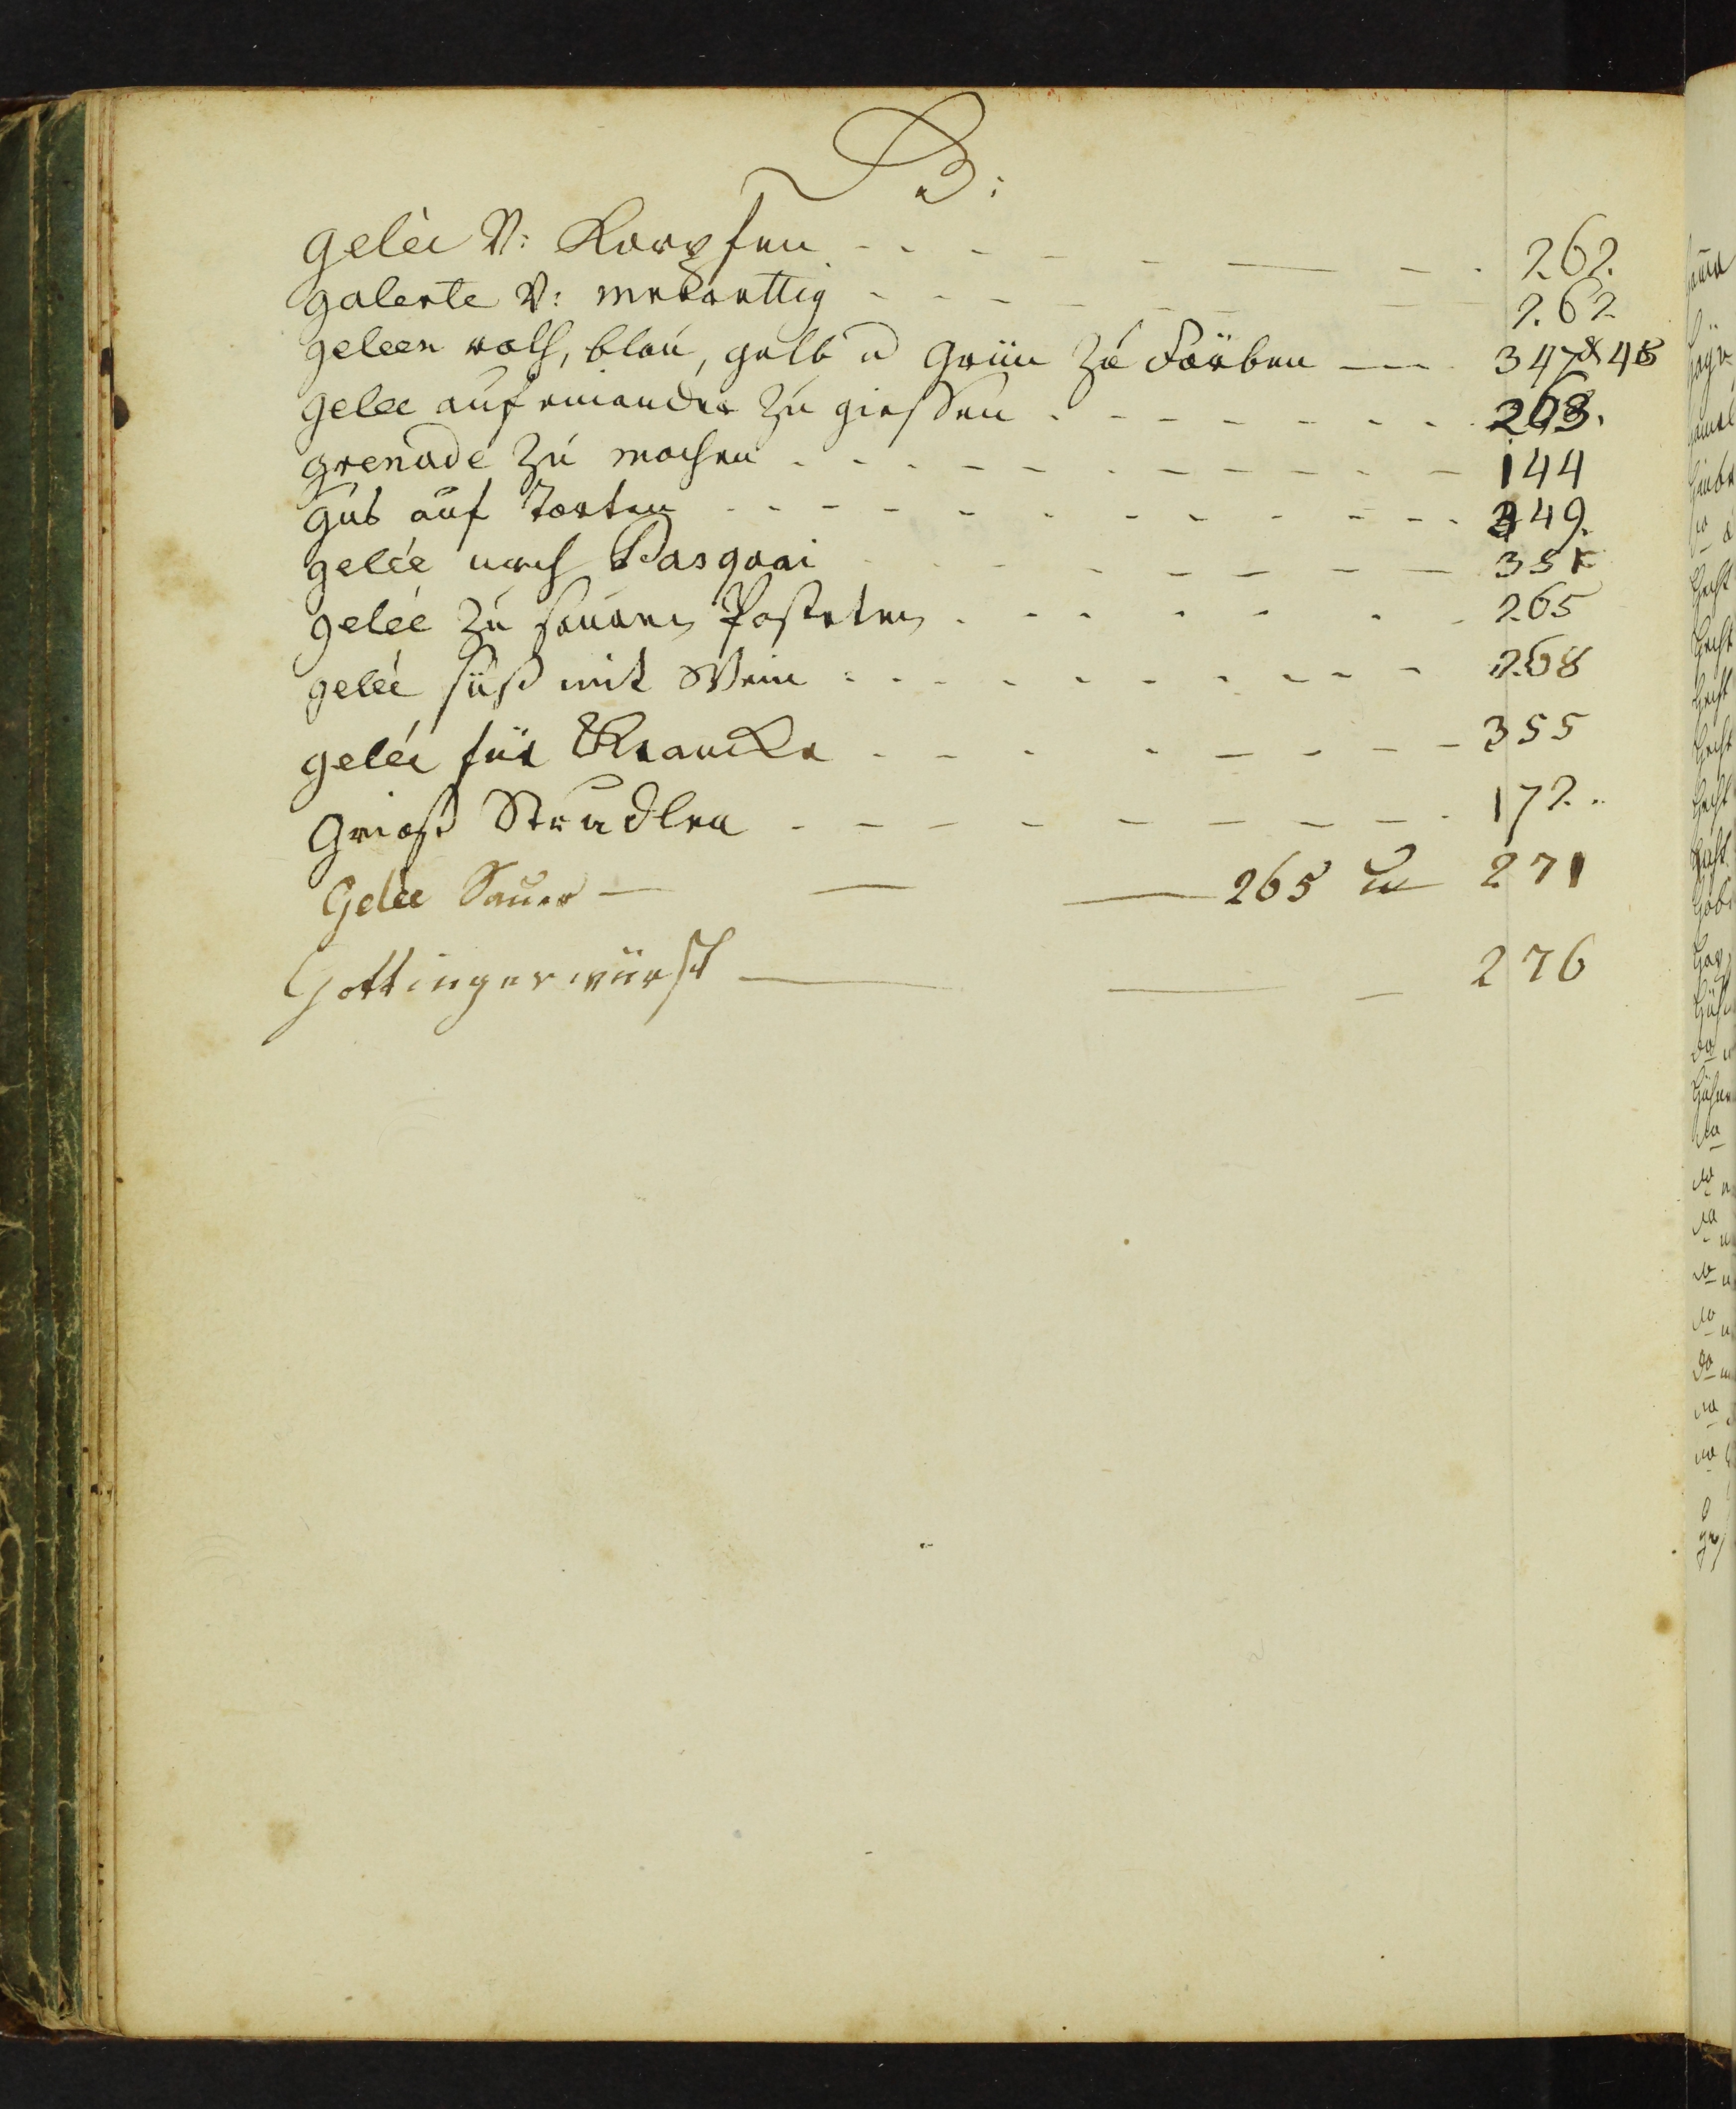 G:
gelée V: Karpfen - - - - - - 262.
galerte V: merkarttig - - - - 262
geleen roth, blau, gelb u grün zu Färben --- 347 & 48
gelee auf einander zu giessen - - - - - - 268.
grenade zu machen - - - - - - 144
Gus auf Torten - - - - - - 349.
gelée nach Pasquai - - - - - - 351
gelée zu sauren Pasteten - - - - - - 265
gelée süß mit Wein - - - - - - 268
gelée für Krancke - - - - - - 355
Grieß Strudlen - - - - - - 172.
Gelée Sauer — — — 265 u 271
Gottingerwürst — — — 276